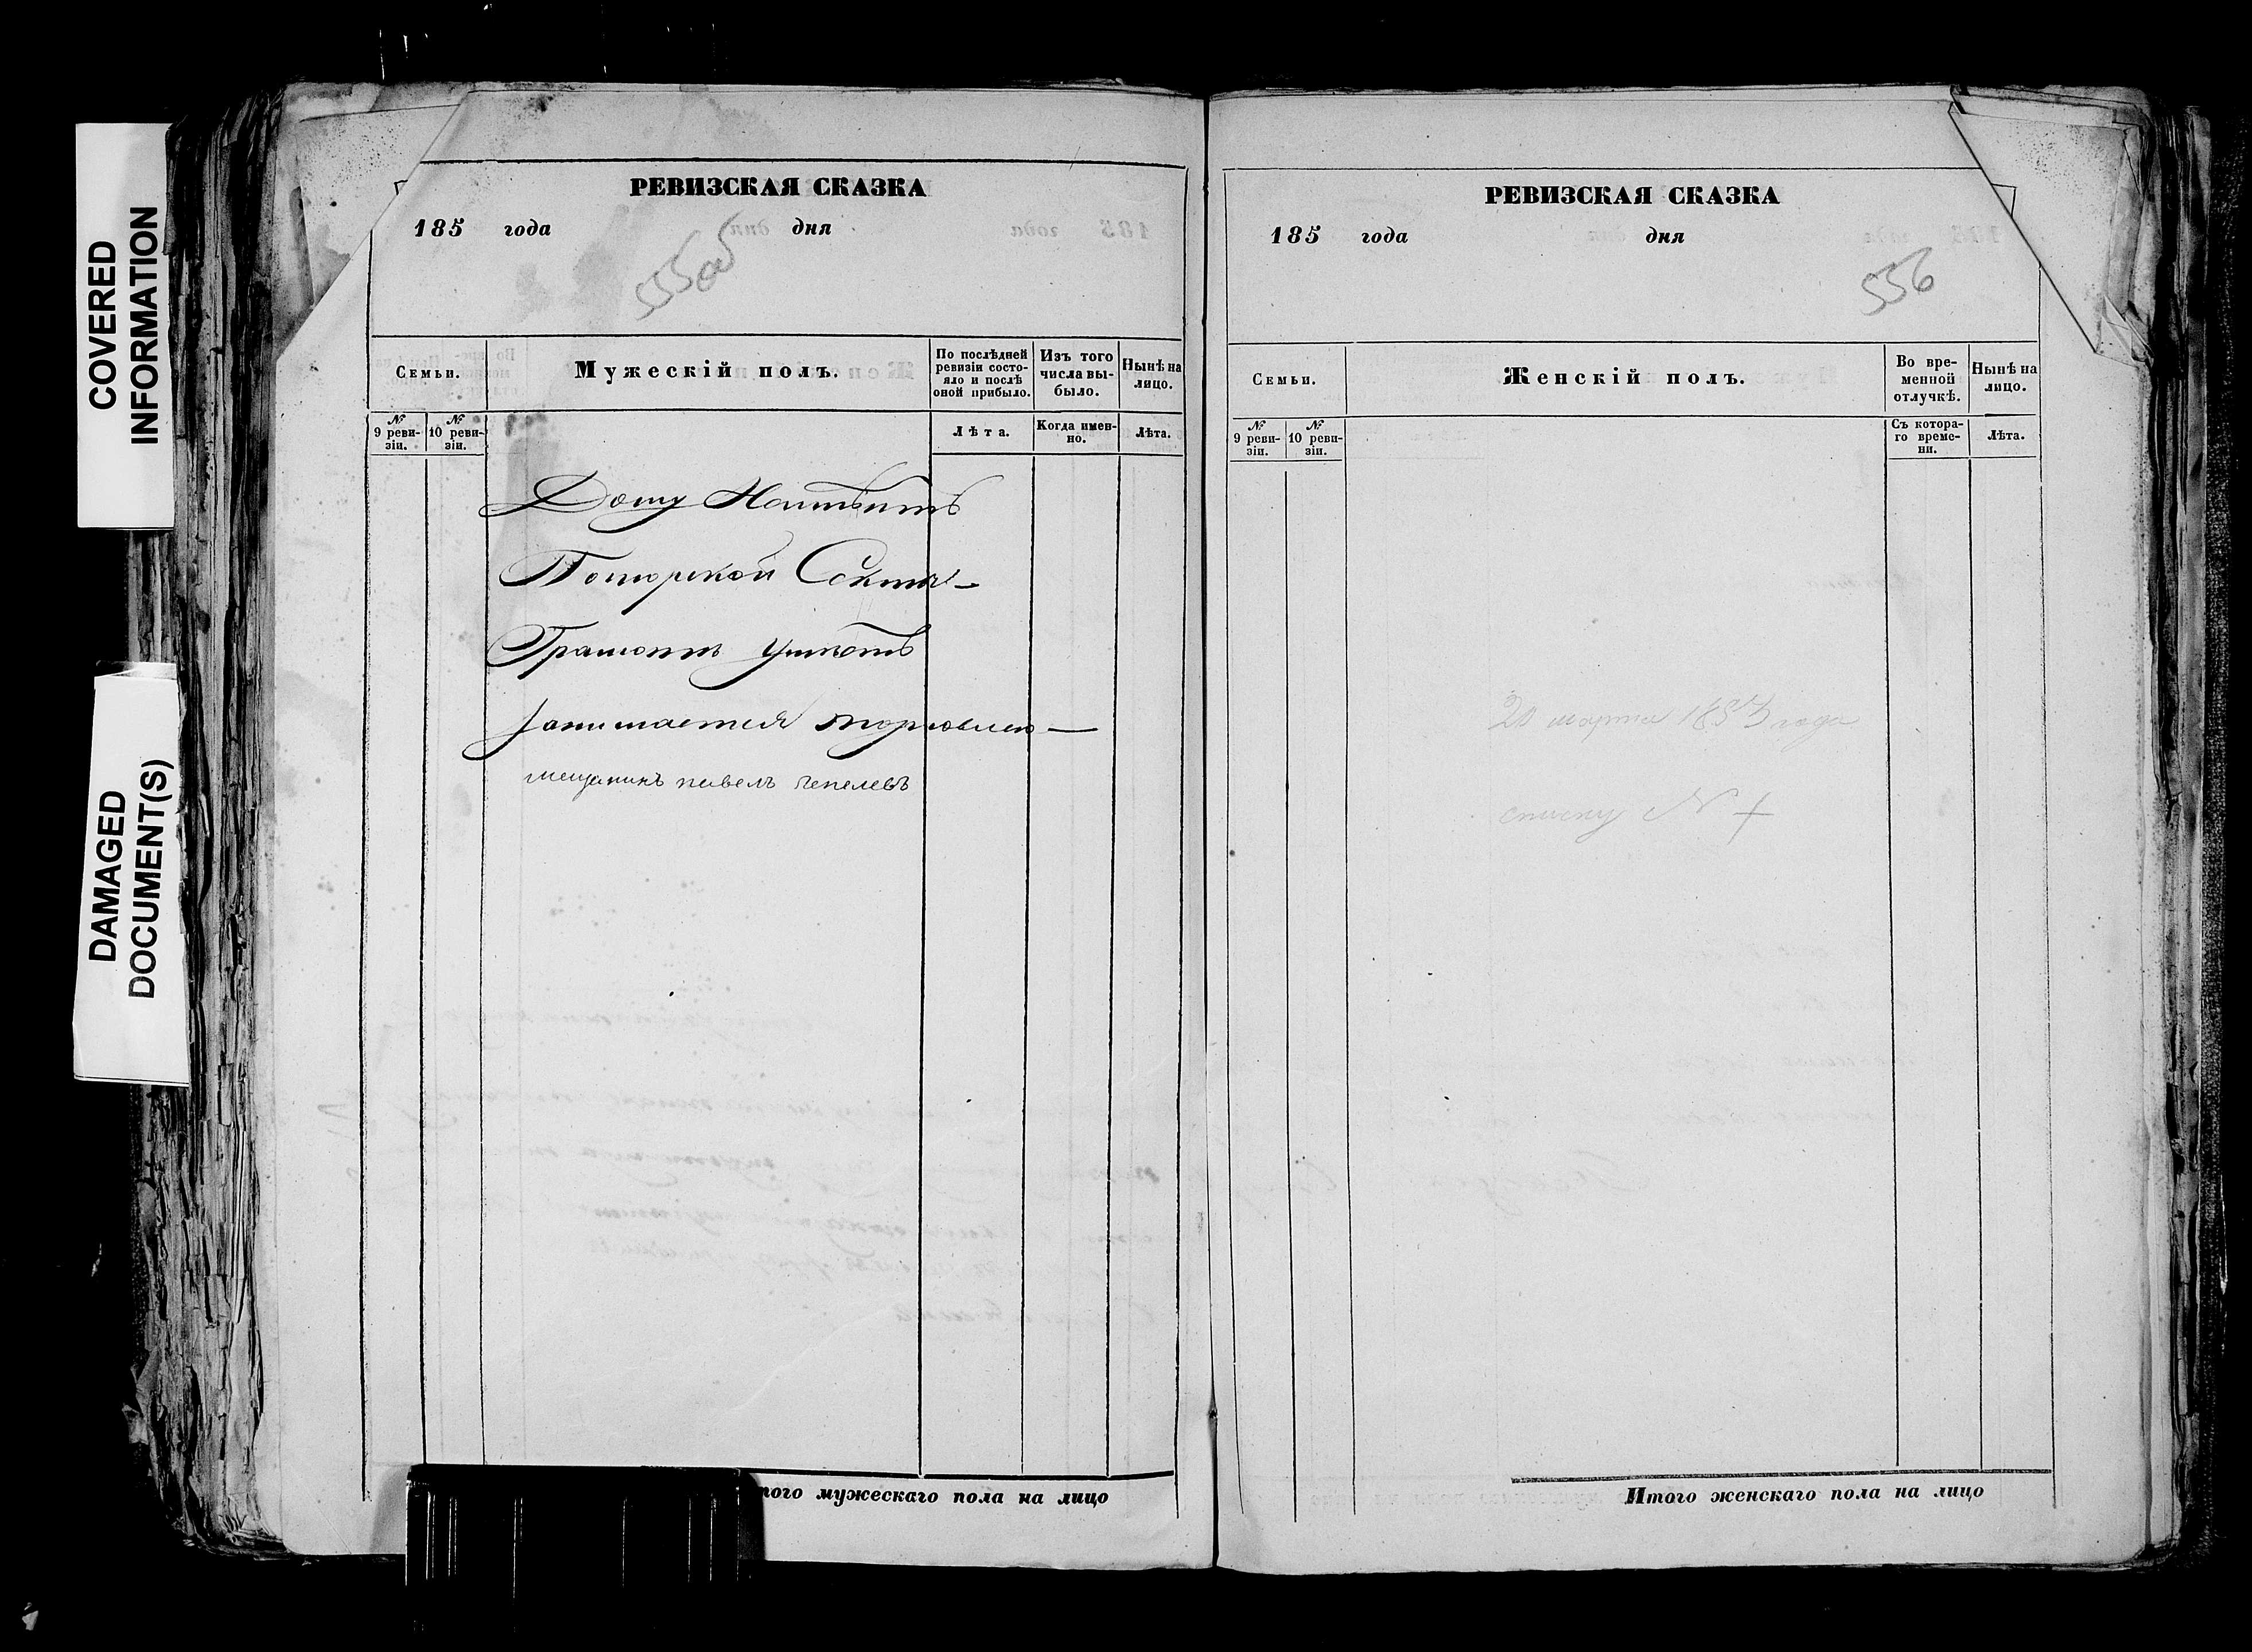 COVERED
INFORMATION
DAMAGED
DOCUMENT(S)
РЕВИЗСКАЯ СКАЗКА
185 года дня
555об
Семьи.
Мужескій полъ.
По послѣдней ревизіи состо-
яло и послѣ оной прибыло.
Изъ того числа вы-
было.
Нынѣ на лицо.
№ 9 реви-
зіи.
№ 10 реви-
зіи.
Лѣта.
Когда имен-
но.
Лѣта.
Дому
Поморской Секты —
Грамотѣ умѣетъ
занимается торговлею —
мещанинъ павелъ чепелевъ
того мужескаго пола на лицо
РЕВИЗСКАЯ СКАЗКА
185 года дня
556
Семьи.
Женскій полъ.
Во вре-
менной отлучкѣ.
Нынѣ на лицо.
№ 9 реви-
зіи.
№ 10 реви-
зіи.
Съ котора-
го време-
ни.
Лѣта.
20 марта 1857 года
списку №
Итого женскаго пола на лицо